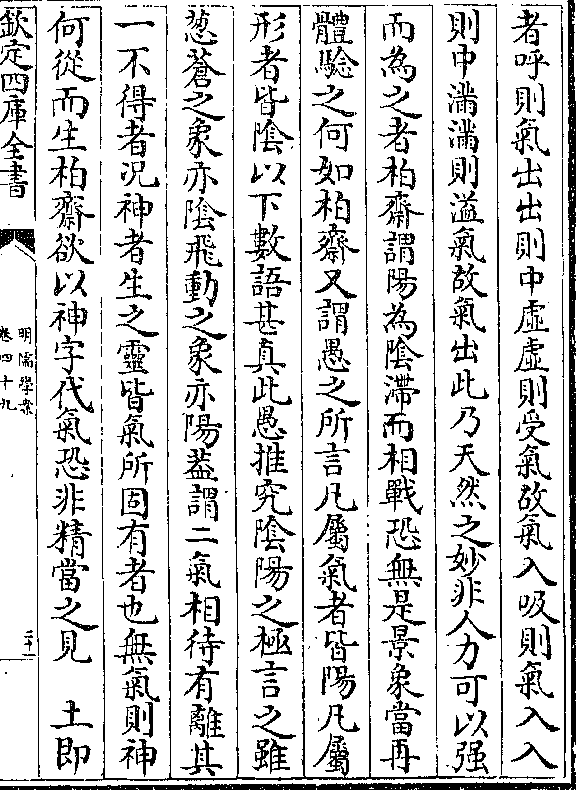 者呼則氣出出則中虛虛則受氣故氣入吸則氣入入
則中滿滿則溢氣故氣出此乃天然之妙非人力可以强
而為之者柏齋謂陽為陰滯而相戰恐無是景象當再
體驗之何如柏齋又謂愚之所言凡屬氣者皆陽凡屬
形者皆陰以下數語甚真此愚推究陰陽之極言之雖
葱蒼之象亦陰飛動之象亦陽葢謂二氣相待有離其
一不得者况神者生之靈皆氣所固有者也無氣則神
何從而生柏齋欲以神字代氣恐非精當之見　土即
欽定四庫全書
明儒學案
卷四十九
二十